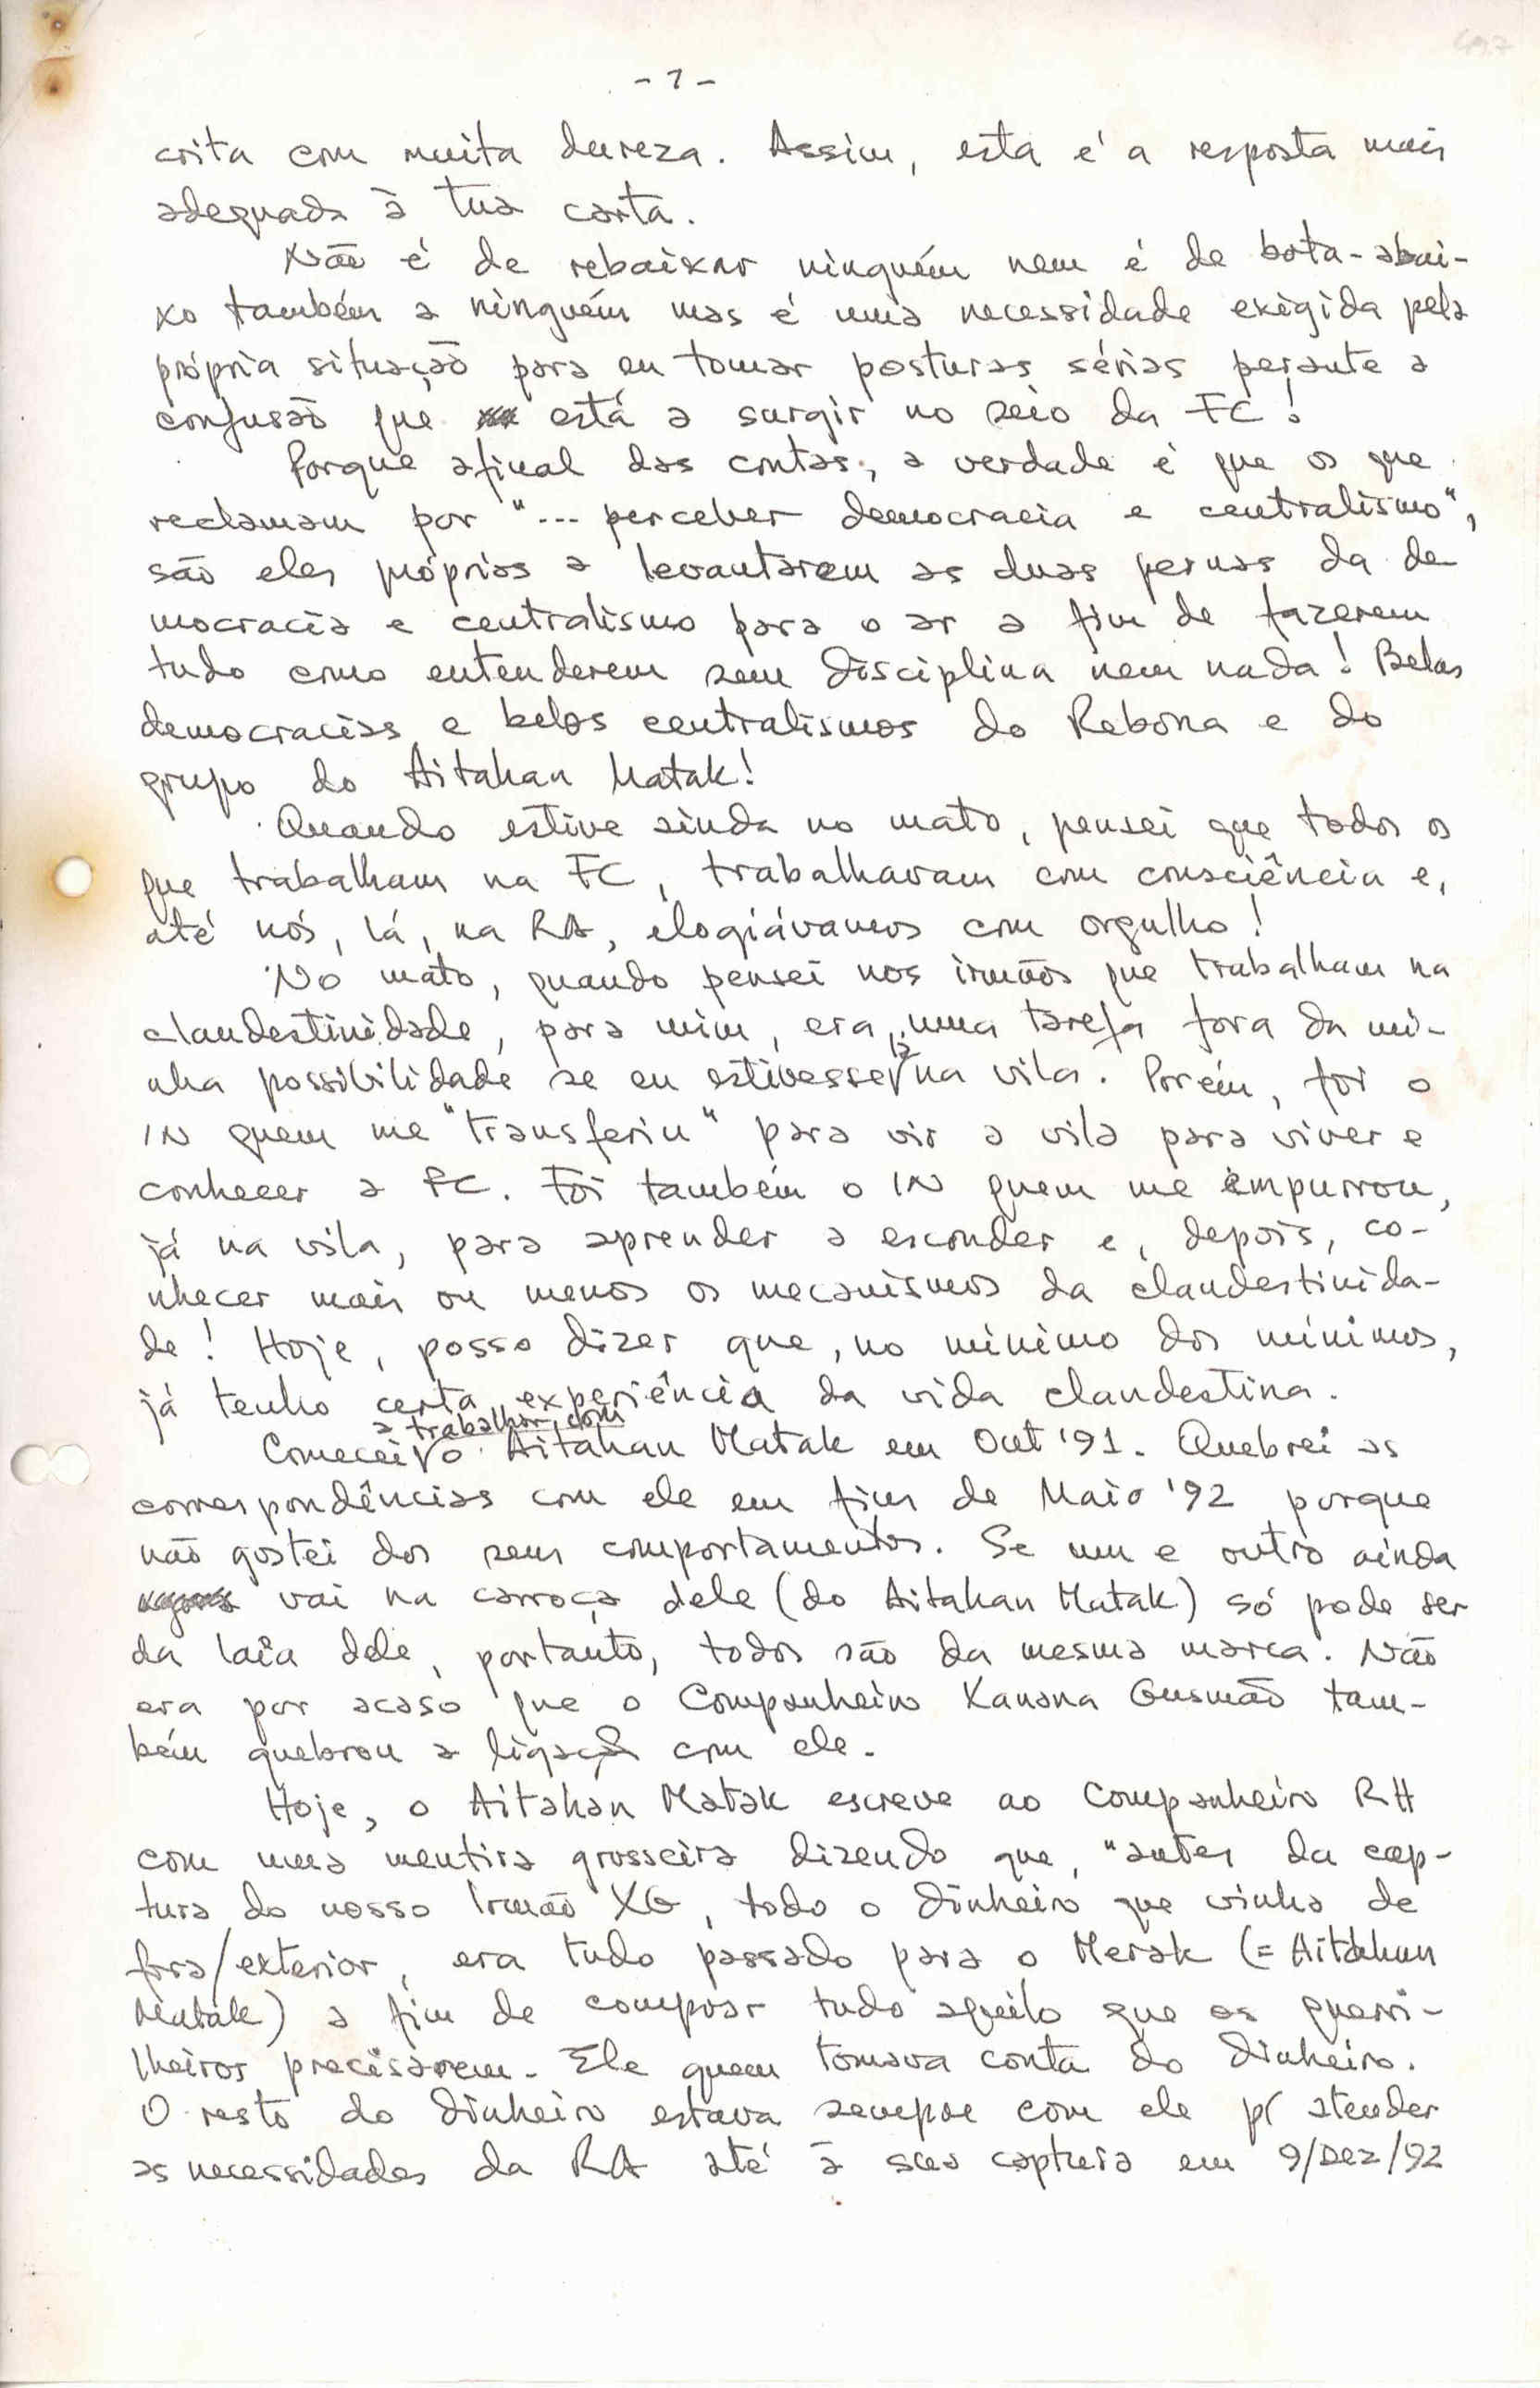 - 7 -
crita com muita dureza. Assim, esta é a resposta mais
adequada à tua carta.
Não é de rebaixar ninguém nem é de bota-abai-
xo também a ninguém mas é uma necessidade exigida pela
própria situação para eu tomar posturas sérias perante a
confusão que está a surgir no seio da FC!
Porque afinal das contas, a verdade é que os que
reclamam por "... perceber democracia e centralismo",
são eles próprios a levantarem as duas pernas da de
mocracia e centralismo para o ar a fim de fazerem
tudo como entenderem sem disciplina nem nada! Belas
democracias e belos centralismos do Rebona e do
grupo do Aitahan Matak!
Quando estive ainda no mato, pensei que todos os
que trabalham na FC, trabalhavam com consciência e,
até nós, lá, na RA, elogiávamos com orgulho!
No mato, quando pensei nos irmãos que trabalham na
clandestinidade, para mim, era uma tarefa fora da mi-
nha possibilidade se eu estivesse já na vila. Porém, foi o
IN quem me "transferiu" para vir a vila para viver e
conhecer a FC. Foi também o IN quem me empurrou,
já na vila, para aprender a esconder e, depois, co-
nhecer mais ou menos os mecanismos da clandestinida-
de! Hoje, posso dizer que, no mínimo dos mínimos,
já tenho certa experiência da vida clandestina.
Comecei a trabalhar com o Aitahan Matak em Out '91. Quebrei as
correspondências com ele em fins de Maio '92 porque
não gostei dos seus comportamentos. Se um e outro ainda
vai na carroça dele (do Aitahan Matak) só pode ser
da laia dele, portanto, todos são da mesma marca. Não
era por acaso que o Companheiro Kanana Gusmão tam-
bém quebrou a ligação com ele.
Hoje, o Aitahan Matak escreve ao Companheiro RH
com uma mentira grosseira dizendo que, "antes da cap-
tura do nosso Irmão XG, todo o dinheiro que vinha de
fora/exterior, era tudo passado para o Merak (= Aitahan
Matak) a fim de comprar tudo aquilo que os guerri-
lheiros precisarem. Ele quem tomava conta do dinheiro.
O resto do dinheiro estava sempre com ele p/ atender
as necessidades da RA até à sua captura em 9/Dez/92